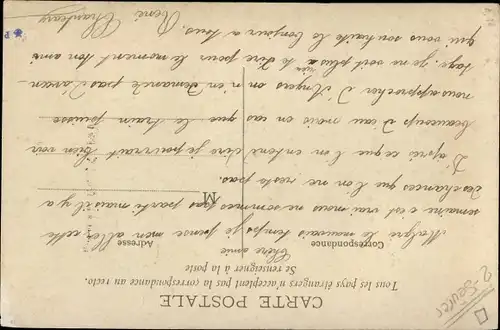 CARTE POSTALE
Tous les pays étrangers n'acceptent pas la correspondance au recto.
Se renseigner à la poste
Correspondance
Adresse
Chère amie
Malgré le mauvais temps je pense m'en aller cette
semaine c'est vrai nous ne sommes pas parti mais il y a
des chances que l'on ne reste pas.
M
D'après ce que l'on entend dire je pourrait bien voir
beaucoup d'eau mais en cas que le train puisse
nous approcher d'Angers on n'en demande pas d'aven-
tage. Je ne voit plus rien à te dire pour le moment ton ami
qui vous souhaite le bonjour a tous. René
2 Sevres